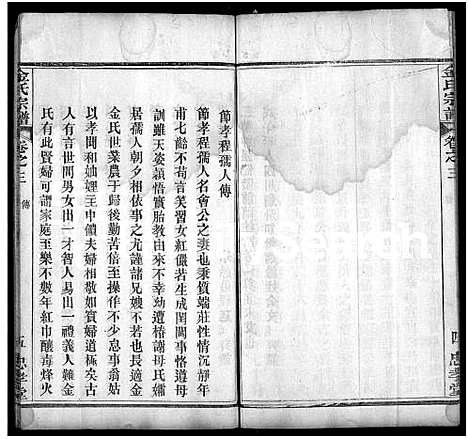 節孝程孺人傳
節孝程孺人名會公之妻也秉質端莊性情沉靜年
甫七齡不苟言笑習女紅儼若生成閨閫事恪遵母
訓雖天姿穎悟實胎教由來不幸幼遭椿謝母氏孀
居孺人朝夕相依事之尤謹諸兄嫂不若也長適金
金氏世業農于歸後勤苦倍至操作不少息事翁姑
以孝聞和妯娌王中饋夫婦相敬如賓婦道極矣古
人有言世間男女出一才智人易出一禮義人難金
氏有此賢婦可謂家庭至樂不數年紅巾釀毒烽火
金氏宗譜
卷之三
傳
忠孝堂